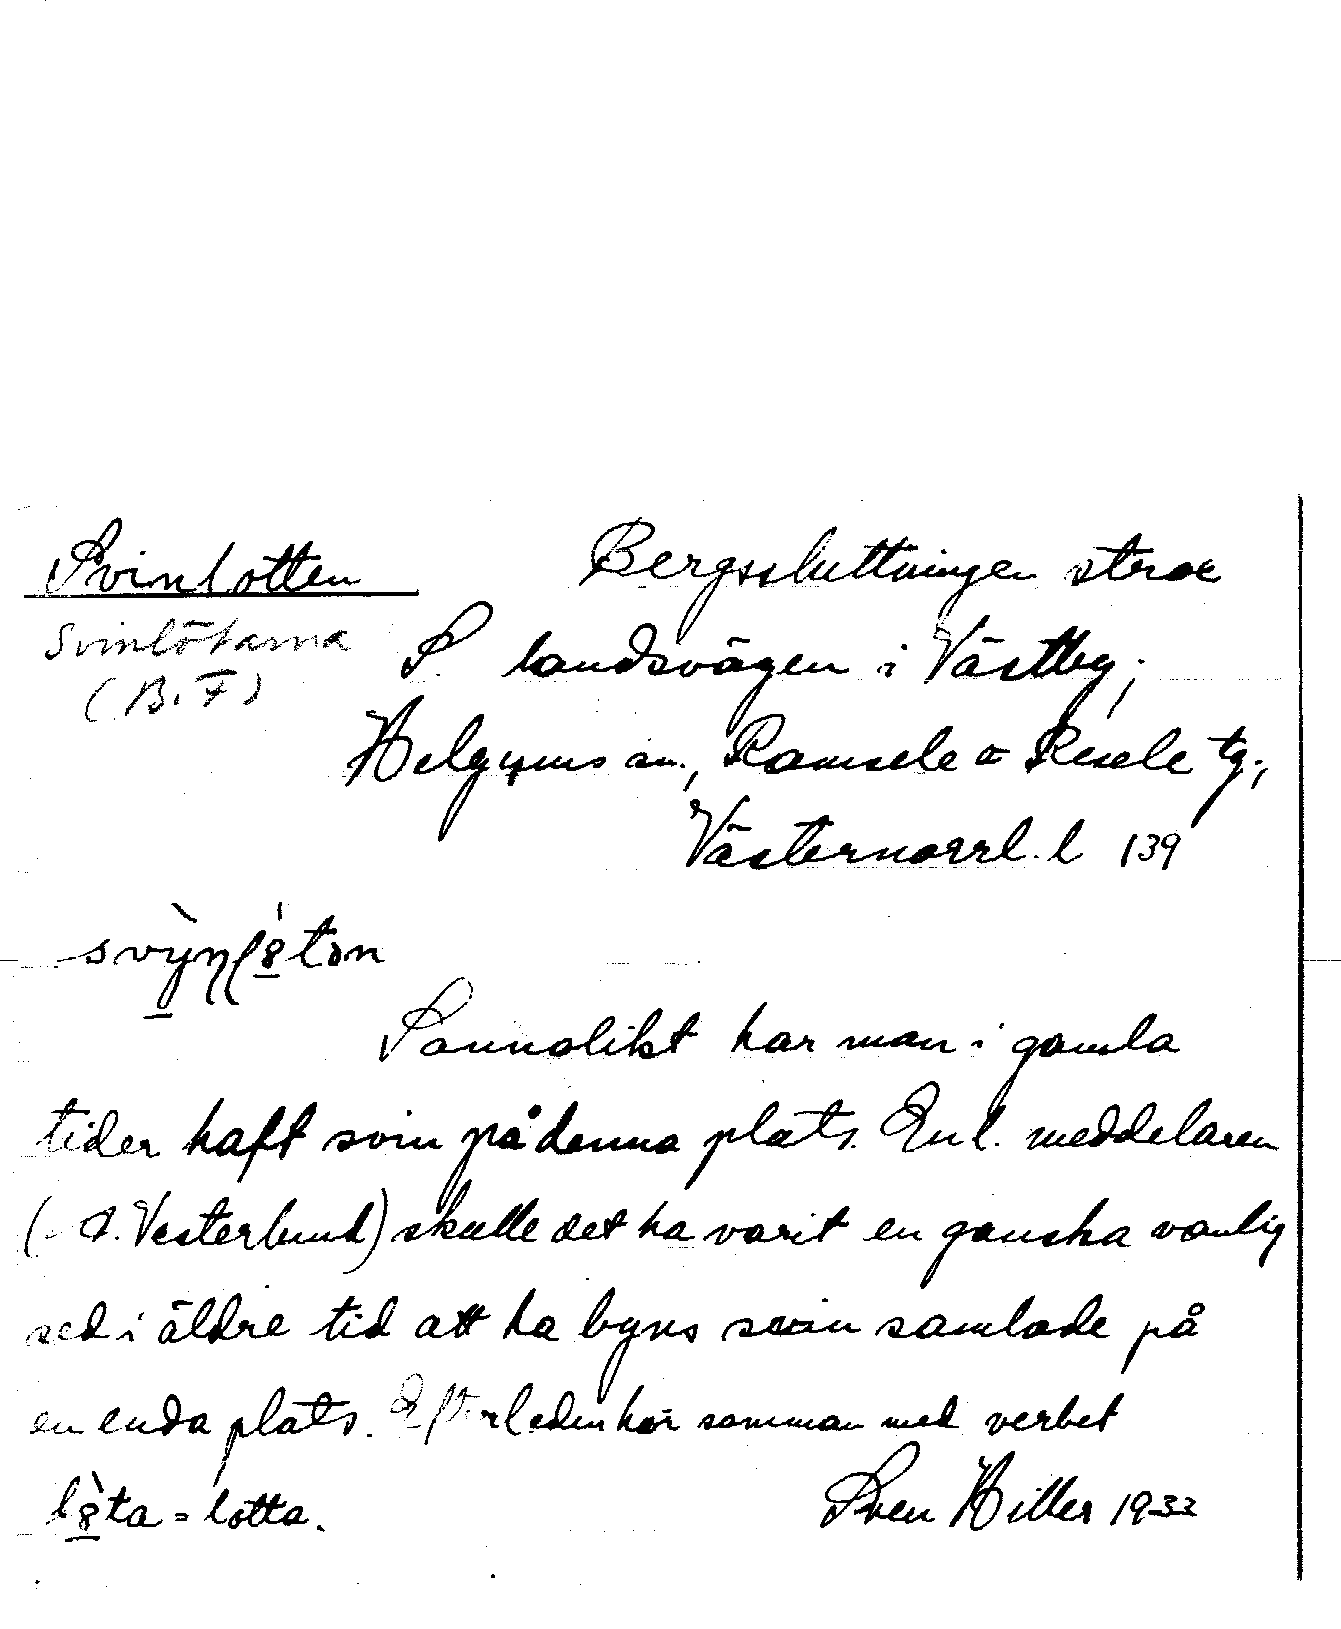 Svinlotten
Svinlötarna
(B.F)
Bergssluttningen strax
S. landsvägen i Västby;
Helgums sn., Ramsele o Resele tg.,
Västernorrl. l 139
Sannolikt har man i gamla
tider haft svin på denna plats. Enl. meddelaren
(A. Vesterlund) skulle det ha varit en ganska vanlig
sed i äldre tid att ha byns svin samlade på
en enda plats. Efterleden hör samman med verbet
= lotta.
Sven Hiller 1933